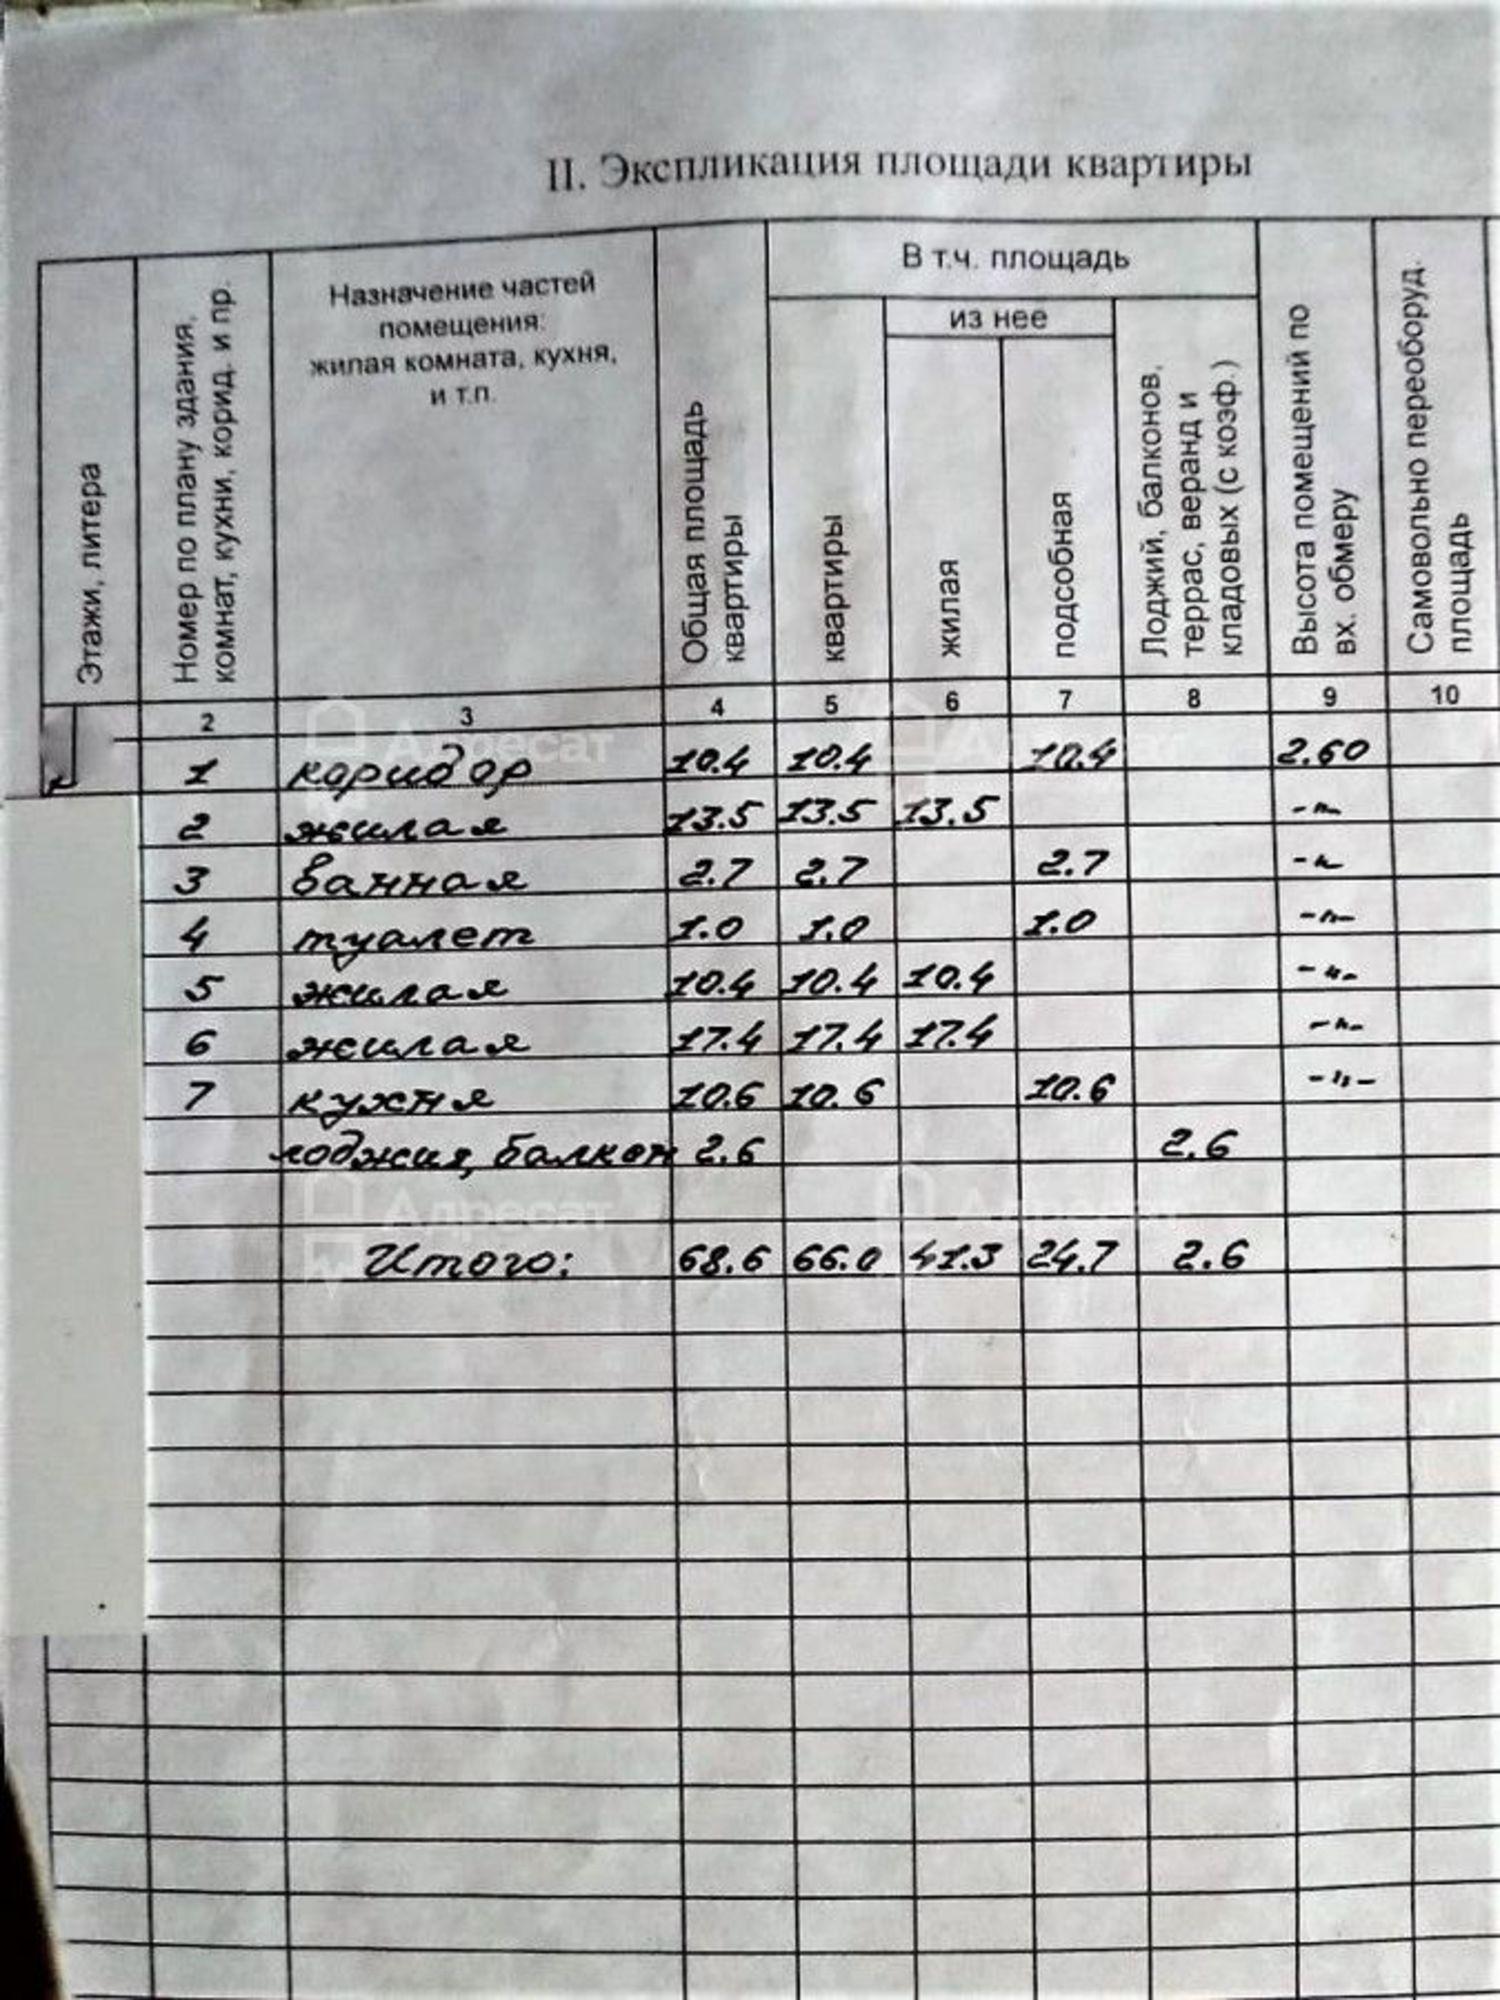 II. Экспликация площади квартиры
Этажи, литера
Номер по плану здания,
комнат, кухни, корид. и пр.
Назначение частей
помещения:
жилая комната, кухня,
и т.п.
Общая площадь
квартиры
В т.ч. площадь
квартиры
из нее
жилая
подсобная
Лоджий, балконов,
террас, веранд и
кладовых (с коэф.)
Высота помещений по
вх. обмеру
Самовольно переоборуд.
площадь
2 3 4 5 6 7 8 9 10
1 коридор 10.4 10.4 10.4 2.60
2 жилая 13.5 13.5 13.5 -"-
3 ванная 2.7 2.7 2.7 -"-
4 туалет 1.0 1.0 1.0 -"-
5 жилая 10.4 10.4 10.4 -"-
6 жилая 17.4 17.4 17.4 -"-
7 кухня 10.6 10.6 10.6 -"-
лоджия, балкон 2.6 2.6
Итого: 68.6 66.0 41.3 24.7 2.6
Адресат Адресат
Адресат Адресат